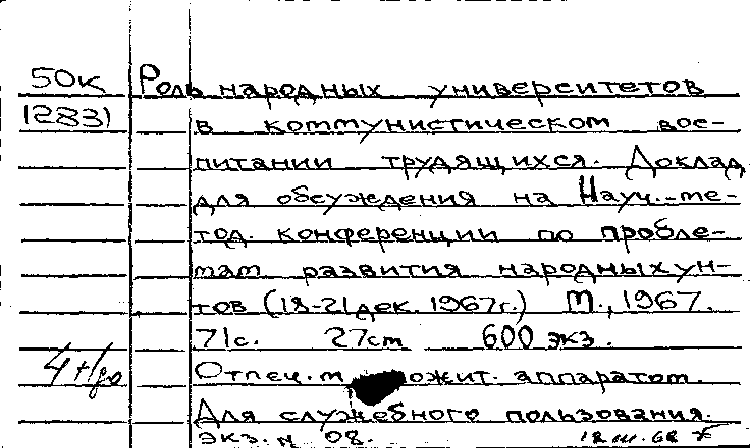 50к Роль народных университетов
12831 в коммунистическом вос-
питании трудящихся. Доклад
для обсуждения на Науч.-ме-
тод. конференции по пробле-
мам развития народных ун-
тов (18-21 дек. 1967г.) М., 1967.
71с. 27см 600 экз.
Отпеч. м ожит. аппаратом.
Для служебного пользования.
экз. н 08. 18.III.68